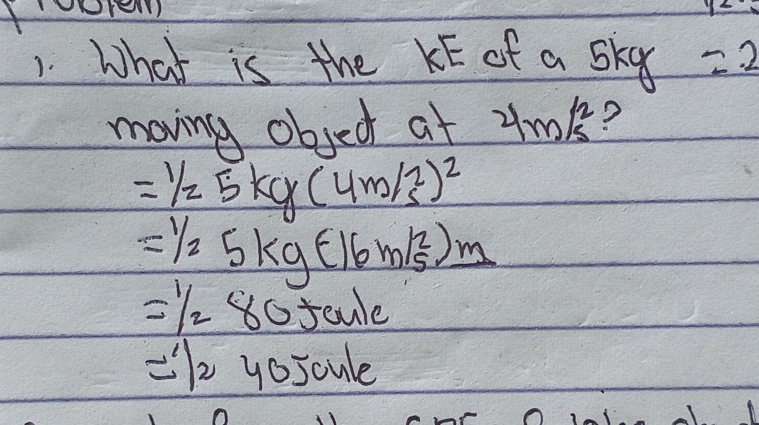 Problem
1. What is the KE of a 5kg = 2
moving object at 4m/s²?
= ½ 5kg (4m/s²)²
= ½ 5kg (16m/s²)m
= ½ 80 Joule
= ½ 40 Joule